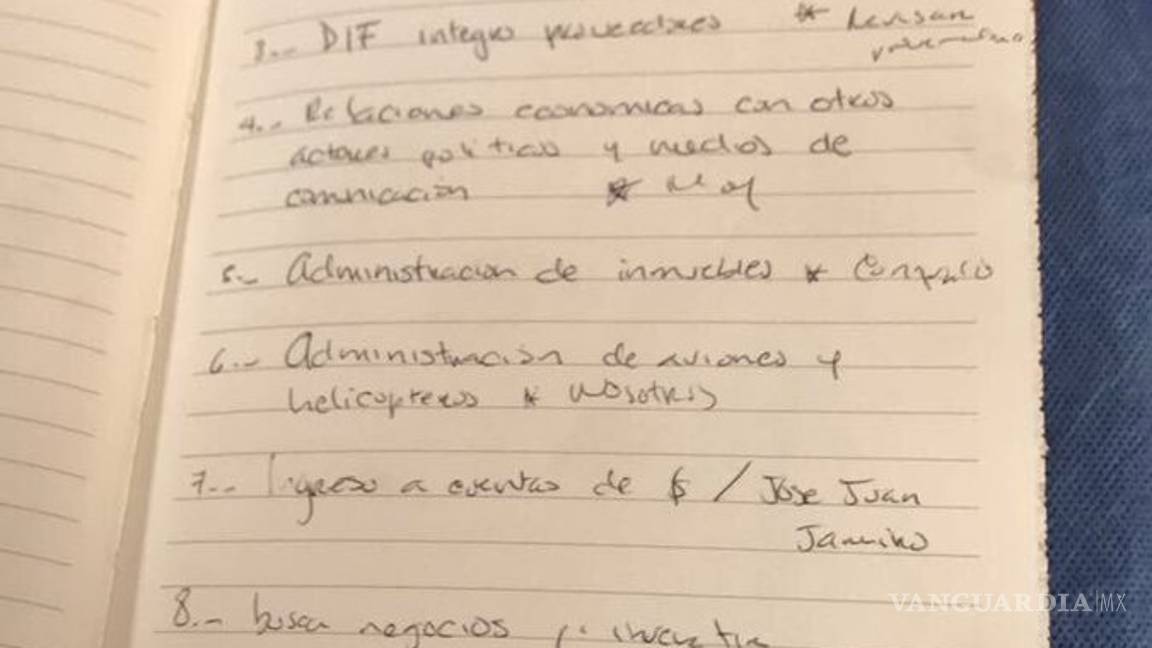 3.- DIF integro proveedores * Revisan
4.- Relaciones economicas con otros
actores politicos y medios de
comunicación *
5.- Administracion de inmuebles *
6.- Administración de aviones y
helicopteros * nosotros
7.- Ingreso a cuentas de $ / Jose Juan
Janeiro
8.- buscar negocios
VANGUARDIA|MX